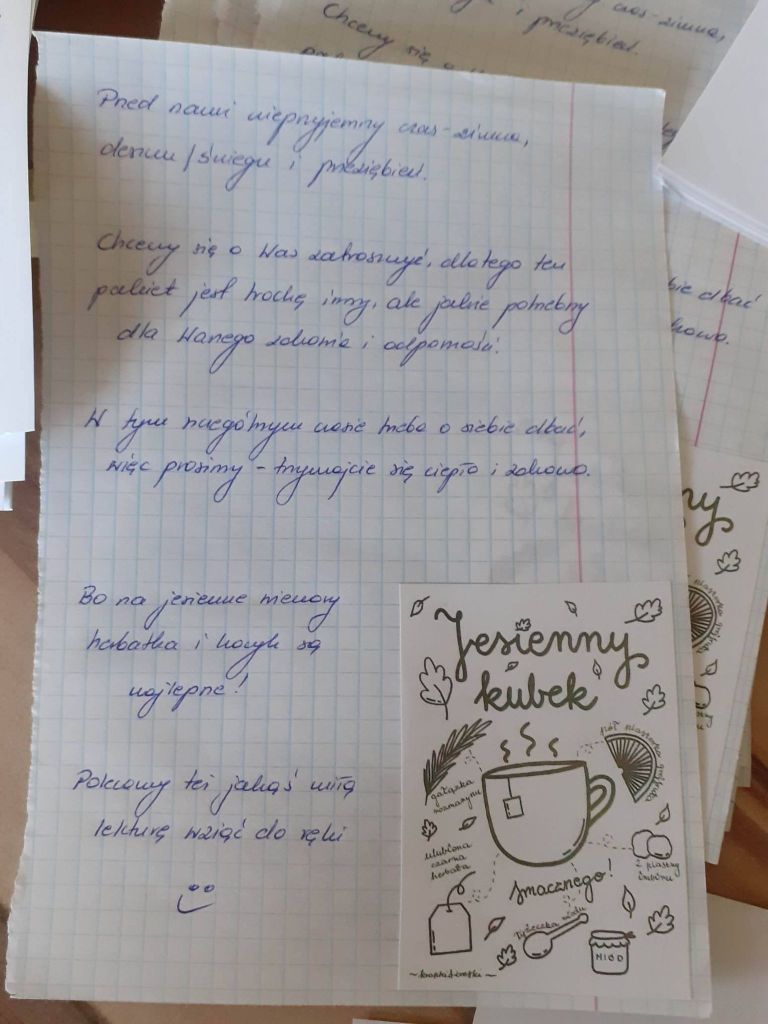 Chcemy się o
czas-zimna,
i przeziębień.
Przed nami nieprzyjemny czas-zimna,
deszczu/śniegu i przeziębień.
Chcemy się o Was zatroszczyć, dlatego ten
pakiet jest trochę inny, ale jakże potrzebny
dla Waszego zdrowia i odporności.
W tym szczególnym czasie trzeba o siebie dbać,
więc prosimy - trzymajcie się ciepło i zdrowo.
bie dbać
rowo.
Bo na jesienne wieczory
herbatka i kocyk są
najlepsze!
Polecamy też jakąś miłą
lekturę wziąć do ręki
Jesienny
kubek
gałązka
rozmarynu
pół plasterka grejpfruta
ulubiona
czarna
herbata
2 plastry
imbiru
smacznego!
łyżeczka miodu
MIÓD
ny